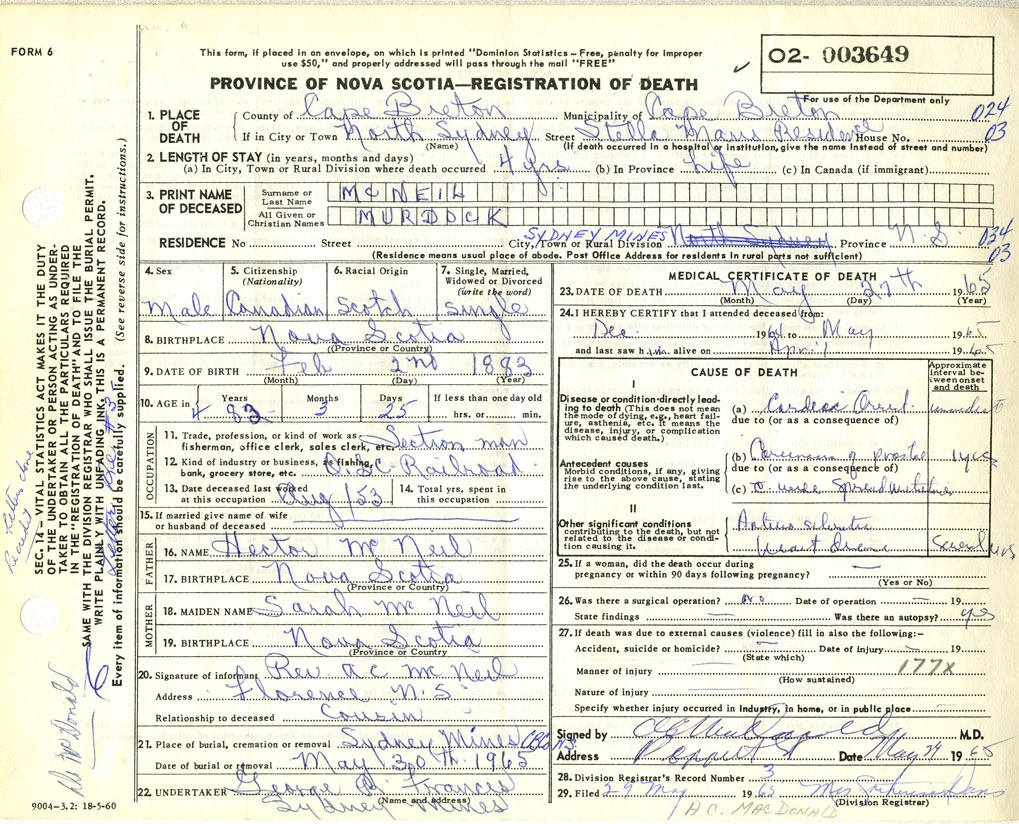 FORM 6
This form, if placed in an envelope, on which is printed "Dominion Statistics – Free, penalty for improper
use $50," and properly addressed will pass through the mail "FREE"
02- 003649
For use of the Department only
PROVINCE OF NOVA SCOTIA—REGISTRATION OF DEATH
1. PLACE OF DEATH County of Cape Breton Municipality of Cape Breton 024
If in City or Town North Sydney (Name) Street Stella Maris Residence House No. 03
(If death occurred in a hospital or institution, give the name instead of street and number)
2. LENGTH OF STAY (in years, months and days)
(a) In City, Town or Rural Division where death occurred 4 yrs (b) In Province Life (c) In Canada (if immigrant)
3. PRINT NAME OF DECEASED
Surname or Last Name McNEIL
All Given or Christian Names MURDOCK
RESIDENCE No Street City, Town or Rural Division SYDNEY MINES North Sydney Province N.S. 034 03
(Residence means usual place of abode. Post Office Address for residents in rural parts not sufficient)
4. Sex Male
5. Citizenship (Nationality) Canadian
6. Racial Origin Scotch
7. Single, Married, Widowed or Divorced (write the word) single
8. BIRTHPLACE Nova Scotia
(Province or Country)
9. DATE OF BIRTH Feb 2nd 1883
(Month) (Day) (Year)
10. AGE in Years 83 Months 3 Days 25 If less than one day old hrs. or min.
OCCUPATION
11. Trade, profession, or kind of work as fisherman, office clerk, sales clerk, etc. Section man
12. Kind of industry or business, as fishing, bank, grocery store, etc. Railroad
13. Date deceased last worked at this occupation Aug/53
14. Total yrs. spent in this occupation
15. If married give name of wife or husband of deceased
FATHER
16. NAME Hector McNeil
17. BIRTHPLACE Nova Scotia
(Province or Country)
MOTHER
18. MAIDEN NAME Sarah McNeil
19. BIRTHPLACE Nova Scotia
(Province or Country)
20. Signature of informant Rev A C McNeil
Address Florence N.S
Relationship to deceased Cousin
21. Place of burial, cremation or removal Sydney Mines CBO N.S.
Date of burial or removal May 30th 1965
22. UNDERTAKER George R Francis
(Name and address)
Sydney Mines
9004–3.2: 18-5-60
MEDICAL CERTIFICATE OF DEATH
23. DATE OF DEATH May 27th 1965
(Month) (Day) (Year)
24. I HEREBY CERTIFY that I attended deceased from:
Dec. 1964 to May 1965
and last saw him alive on April 1965
CAUSE OF DEATH
Approximate interval between onset and death
I
Disease or condition directly leading to death (This does not mean the mode of dying, e.g., heart failure, asthenia, etc. It means the disease, injury, or complication which caused death.)
(a) Cardiac Arrest immediate
due to (or as a consequence of)
Antecedent causes
Morbid conditions, if any, giving rise to the above cause, stating the underlying condition last.
(b) Carcinoma of prostate 1 yrs
due to (or as a consequence of)
(c)
II
Other significant conditions contributing to the death, but not related to the disease or condition causing it.
Heart Disease Several yrs
25. If a woman, did the death occur during pregnancy or within 90 days following pregnancy?
(Yes or No)
26. Was there a surgical operation? no Date of operation — 19
State findings — Was there an autopsy? yes
27. If death was due to external causes (violence) fill in also the following:–
Accident, suicide or homicide? — Date of injury — 19
(State which)
Manner of injury 177X
(How sustained)
Nature of injury
Specify whether injury occurred in industry, in home, or in public place
Signed by M.D.
Address Date May 29 1965
28. Division Registrar's Record Number 3
29. Filed 29 May 1965
(Division Registrar)
A C. MACDONALD
SEC. 14 – VITAL STATISTICS ACT MAKES IT THE DUTY
OF THE UNDERTAKER OR PERSON ACTING AS UNDER-
TAKER TO OBTAIN ALL THE PARTICULARS REQUIRED
IN THE "REGISTRATION OF DEATH" AND TO FILE THE
SAME WITH THE DIVISION REGISTRAR WHO SHALL ISSUE THE BURIAL PERMIT.
WRITE PLAINLY WITH UNFADING INK, THIS IS A PERMANENT RECORD.
Every item of information should be carefully supplied. (See reverse side for instructions.)